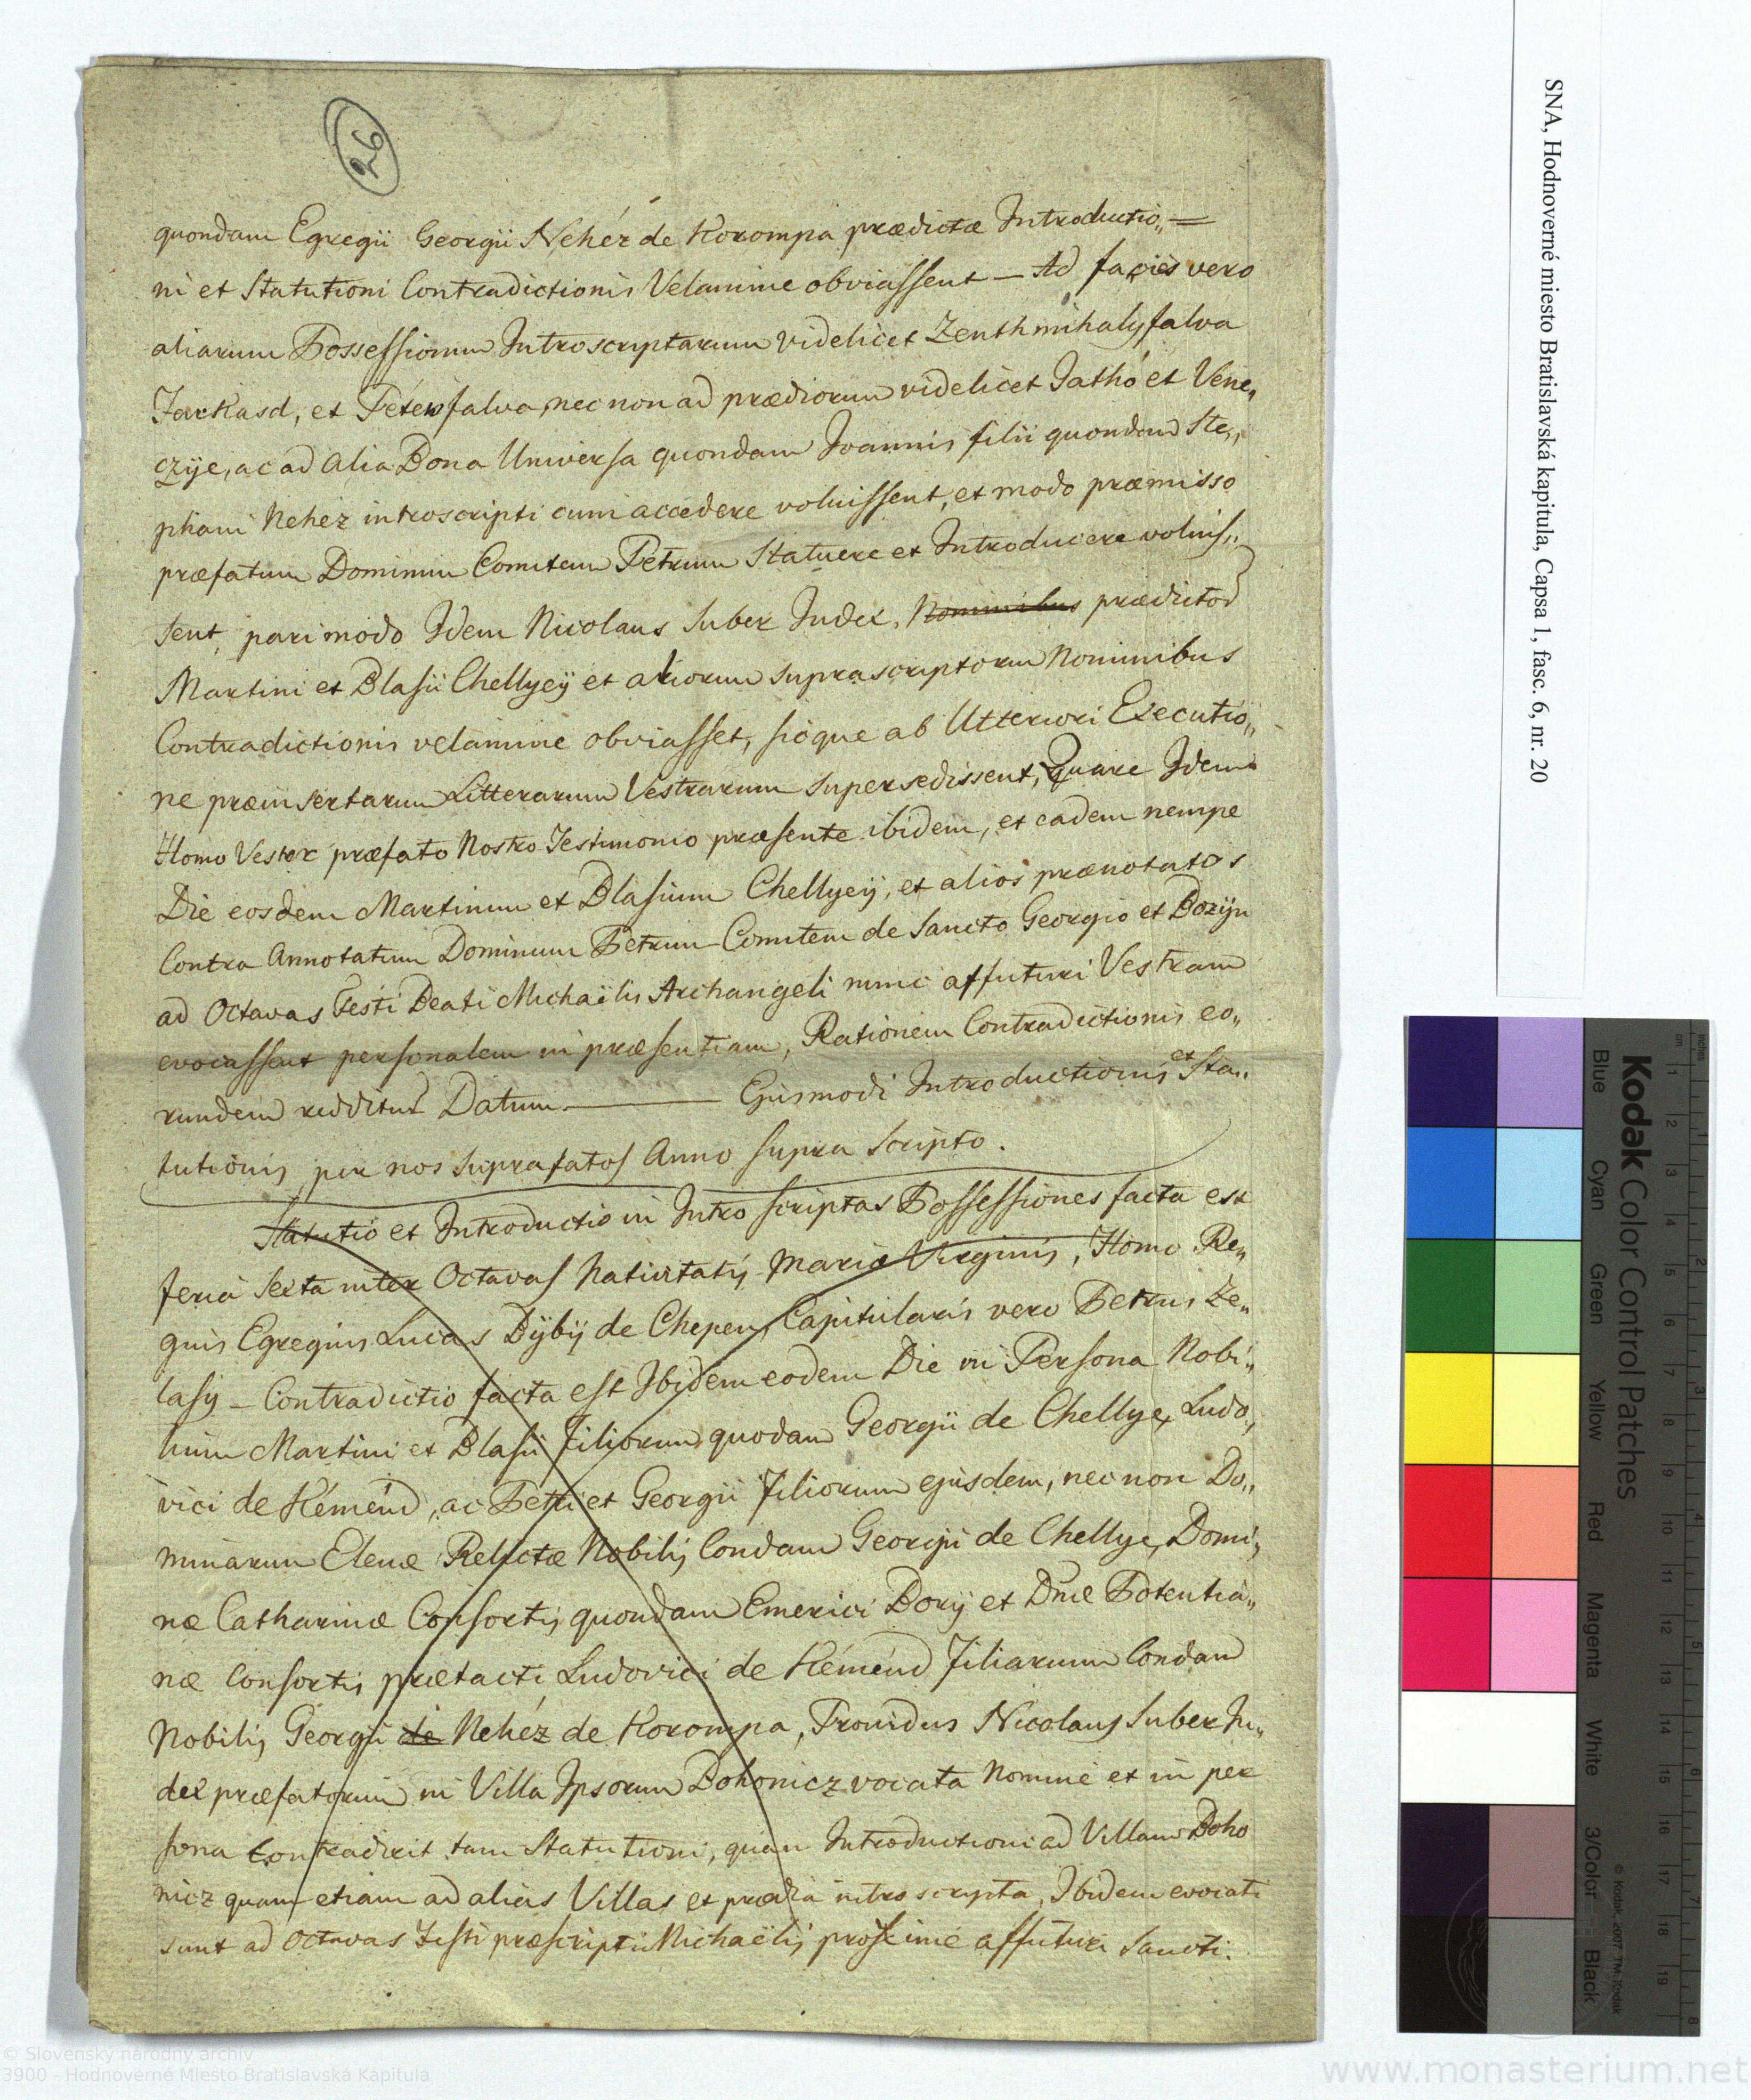 26
quondam Egregii Georgii Nehéz de Korompa prædictæ Introductio„
ni et Statutioni Contradictionis Velamine obviassent — Ad facies vero
aliarum Possessionum Introscriptarum videlicet Zenthmihalyfalva
Farkasd, et Péterfalva, nec non ad prædiorum videlicet Jathó et Vene„
czÿe, ac ad alia Bona Universa quondam Joannis filii quondam Ste„
phani Nehéz introscripti cum accedere voluissent, et modo præmisso
præfatum Dominum Comitem Petrum Statuere et Introducere voluis„
sent, pari modo Idem Nicolaus Suber Judex, Nominibus prædictor
Martini et Blasii Chellyeÿ et aliorum suprascriptorum Nominibus
Contradictionis velamine obviasset, sicque ab Ulteriori Executio„
ne præinsertarum Litterarum Vestrarum supersedissent, Quare Idem
Homo Vester præfato Nostro Testimonio præsente ibidem, et eadem nempe
Die eosdem Martinum et Blasium Chellyeÿ, et alios prænotatos
Contra Annotatum Dominum Petrum Comitem de Sancto Georgio et Bozÿn
ad Octavas Festi Beati Michaëlis Archangeli nunc affuturi Vestram
evocassent personalem in præsentiam, Rationem Contradictionis eo„
rundem reddituros Datum ——— Ejusmodi Introductionis et Sta„
tutionis per nos suprafatos Anno supra scripto.
Statutio et Introductio in Intro scriptas Possessiones facta est
feria Sexta inter Octavas Nativitatis Mariæ Virginis, Homo Re„
gius Egregius Lucas Dÿbÿ de Chepen, Capitularis vero Petrus Ze„
lasÿ — Contradictio facta est Ibidem eodem Die in Persona Nobi„
lium Martini et Blasii filiorum quodam Georgii de Chellye, Ludo„
vici de Kéménd, ac Petri et Georgii filiorum ejusdem, nec non Do„
minarum Elenæ Relictæ Nobilis Condam Georgii de Chellye, Domi„
næ Catharinæ Consortis quondam Emerici Borÿ et Dnæ Potentia„
næ Consortis prætacti Ludovici de Kéménd filiarum Condam
Nobilis Georgii de Nehéz de Korompa, Providus Nicolaus Suber Ju„
dex præfatorum in Villa Ipsorum Bohonicz vocata Nomine et in per
sona Contradixit tam Statutioni, quam Introductioni ad Villam Boho
nicz quam etiam ad alias Villas et prædia intro scripta, Ibidem evocati
sunt ad Octavas Festi præscripti Michaëlis proxime affuturi Sancti.
SNA, Hodnoverné miesto Bratislavská kapitula, Capsa 1, fasc. 6, nr. 20
Kodak Color Control Patches
Blue Cyan Green Yellow Red Magenta White 3/Color Black
© Kodak, 2007 TM: Kodak
inches 1 2 3 4 5 6 7 8
cm 1 2 3 4 5 6 7 8 9 10 11 12 13 14 15 16 17 18 19
© Slovenský národný archív
3900 - Hodnoverné Miesto Bratislavská Kapitula
www.monasterium.net